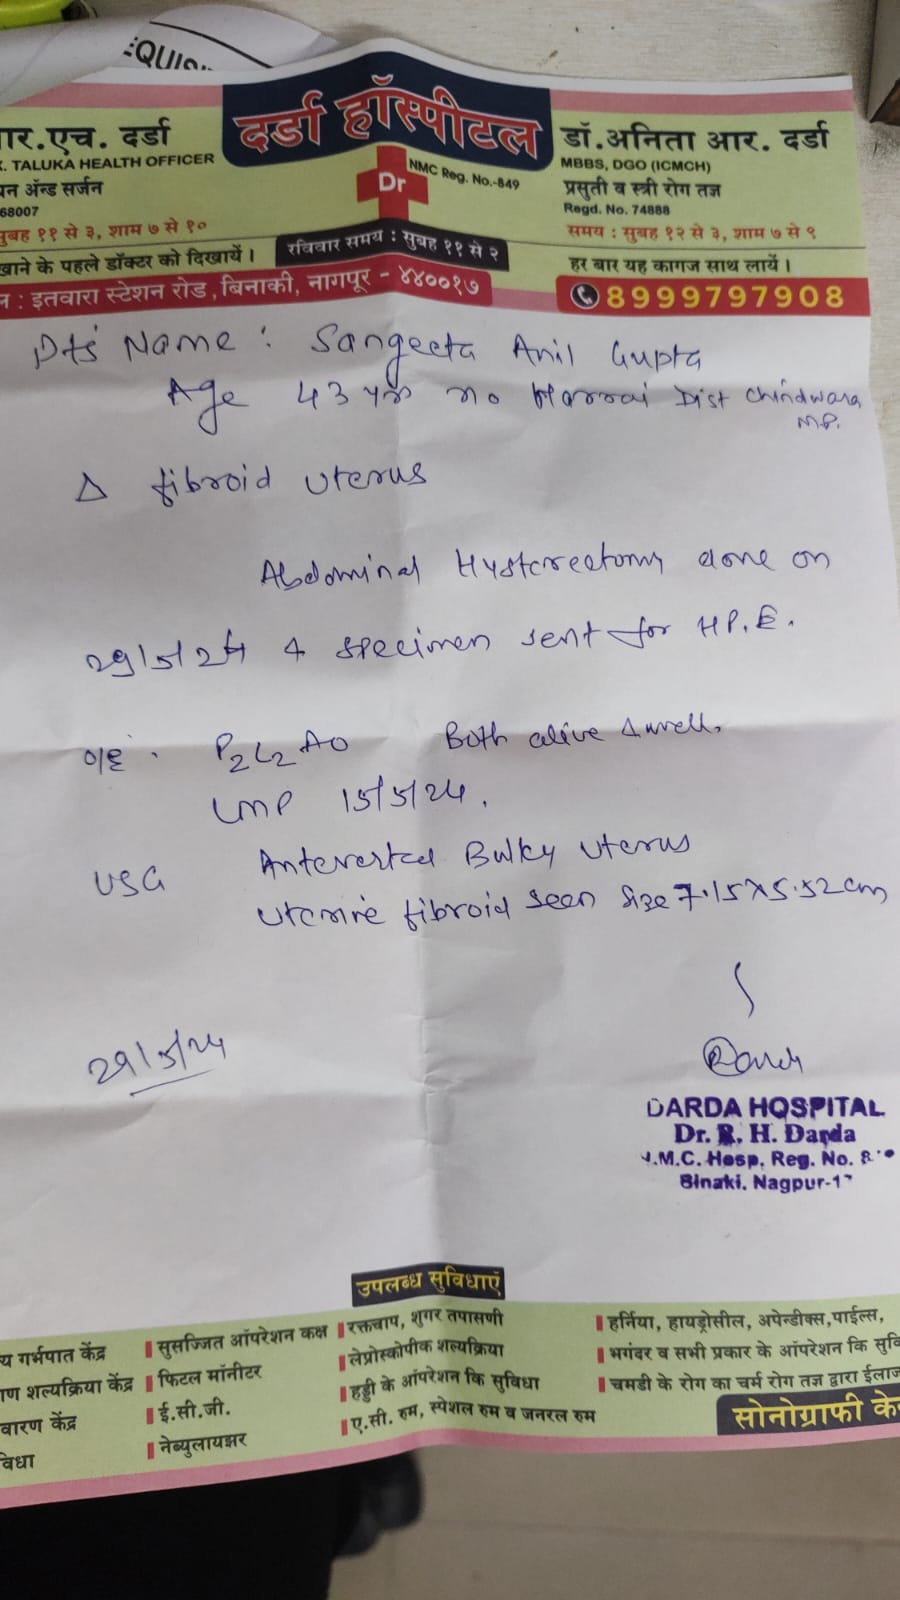 EQUIS
दर्डा हॉस्पीटल
आर.एच. दर्डा
TALUKA HEALTH OFFICER
अ‍ॅन्ड सर्जन
68007
सुबह ११ से ३, शाम ७ से १०
के पहले डॉक्टर को दिखायें।
Dr
NMC Reg. No.-849
रविवार समय : सुबह ११ से २
डॉ.अनिता आर. दर्डा
MBBS, DGO (ICMCH)
प्रसुती व स्त्री रोग तज्ञ
Regd. No. 74888
समय : सुबह १२ से ३, शाम ७ से ९
हर बार यह कागज साथ लायें।
: इतवारा स्टेशन रोड, बिनाकी, नागपूर - ४४००१७
8999797908
Pts Name : Sangeeta Anil Gupta
Age 43 yrs r/o Harrai Dist Chindwara
M.P.
Δ fibroid uterus
Abdominal Hysterectomy done on
29/5/24 & specimen sent for H.P.E.
O/E : P2L2A0 Both alive & well.
LMP 15/5/24.
USG Anteverted Bulky uterus
Uterine fibroid seen size 7.15x5.52cm
29/5/24
DARDA HOSPITAL
Dr. R. H. Darda
N.M.C. Hosp. Reg. No.
Binaki, Nagpur-17
उपलब्ध सुविधाएं
गर्भपात केंद्र
शल्यक्रिया केंद्र
केंद्र
सुसज्जित ऑपरेशन कक्ष
फिटल मॉनीटर
ई.सी.जी.
नेब्युलायझर
रक्तचाप, शुगर तपासणी
लेप्रोस्कोपीक शल्यक्रिया
हड्डी के ऑपरेशन कि सुविधा
ए.सी. रुम, स्पेशल रुम व जनरल रुम
हर्निया, हायड्रोसील, अपेन्डीक्स, पाईल्स,
भगंदर व सभी प्रकार के ऑपरेशन कि
चमडी के रोग का चर्म रोग तज्ञ द्वारा
सोनोग्राफी